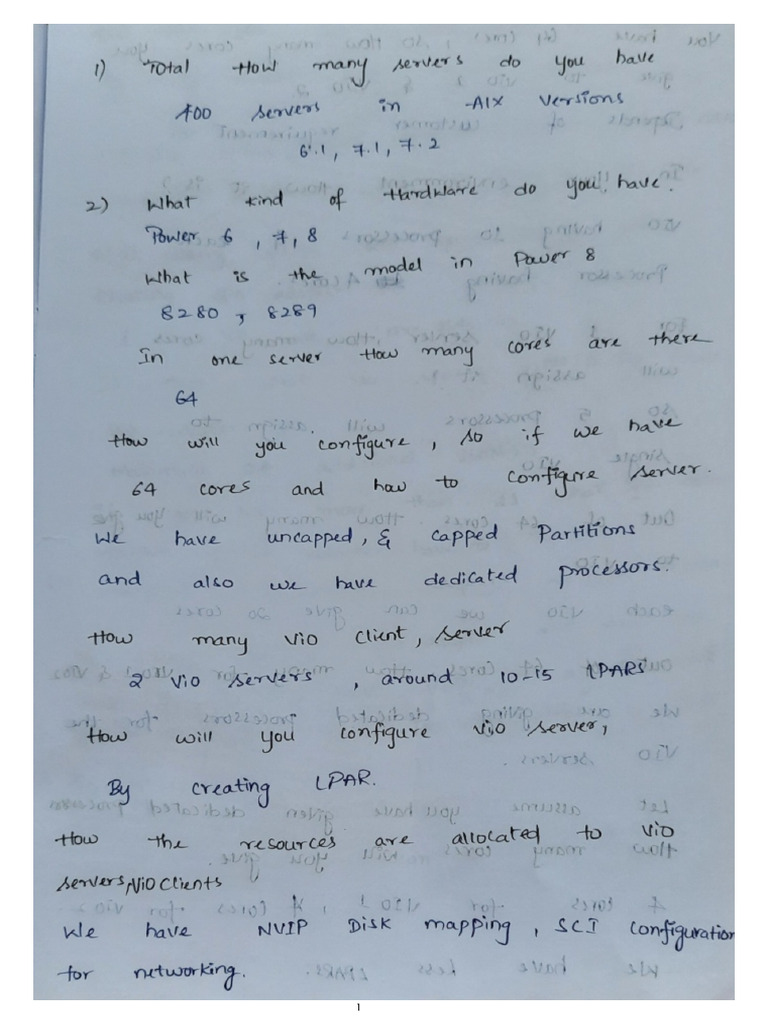 1) Total How many servers do you have
400 servers in AIX versions
6.1, 7.1, 7.2
2) What kind of Hardware do you have.
Power 6, 7, 8
What is the model in Power 8
8280, 8289
In one server How many cores are there
64
How will you configure, so if we have
64 cores and how to configure server.
We have uncapped, & capped Partitions
and also we have dedicated processors.
How many VIO client, server
2 VIO servers, around 10-15 LPARS
How will you configure VIO server,
By creating LPAR.
How the resources are allocated to VIO
servers, VIO clients
We have NVIP Disk mapping, SCI configuration
for networking.
1